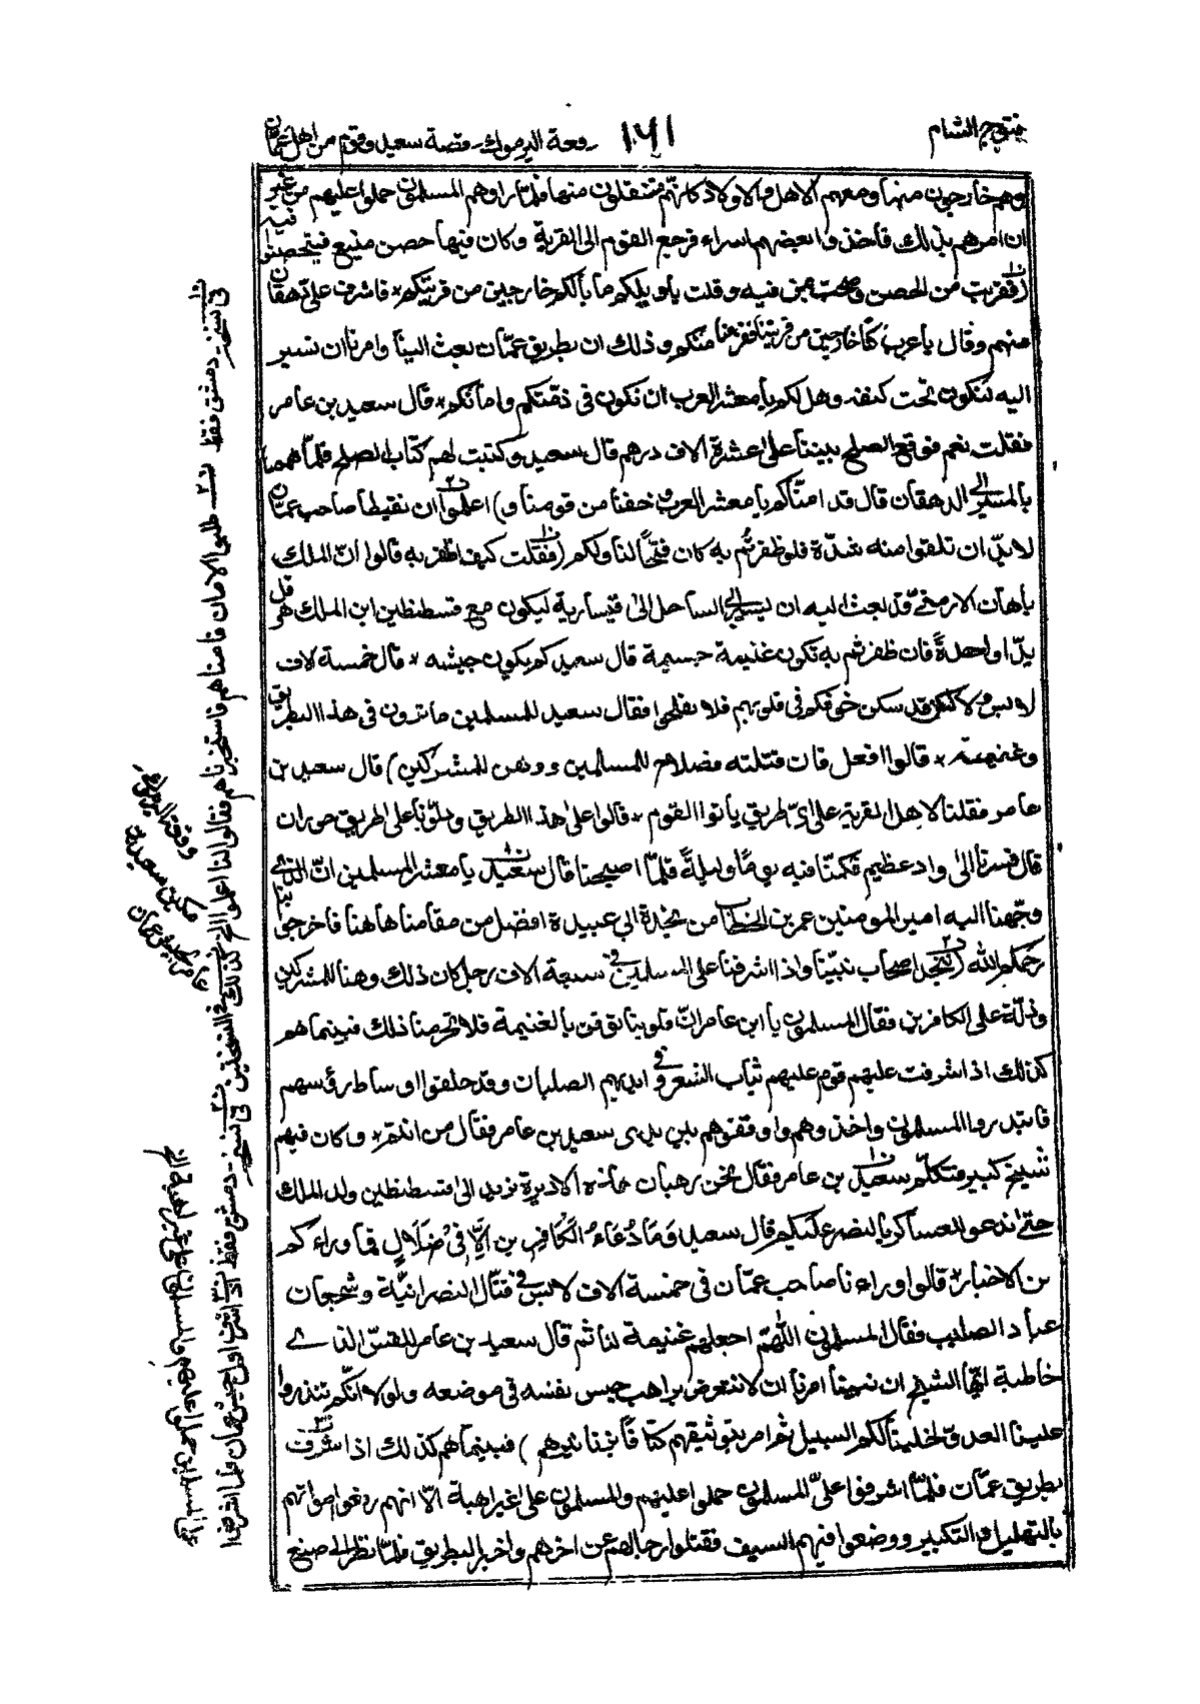 فتوح الشام
١٦١
وقعة اليرموك - قصة سعيد وقوم من اهل عمان
وهم خارجون منها ومعهم الاهل والاولاد كانهم متنقلون منها فلما راوهم المسلمون حملوا عليهم من غير
ان امرهم بذلك فاخذوا بعضهم اسراء فرجع القوم الى القرية وكان فيها حصن منيع فتحصنوا فيه
فقربت من الحصن وصحت بمن فيه وقلت ياويلكم ما بالكم خارجين من قريتكم فاشرف على دهقان
منهم وقال يا عرب كنا خارجين من قريتنا فزعنا منكم وذلك ان بطريق عمان بعث الينا وامرنا ان نسير
اليه لنكون تحت كنفه وهل لكم يا معشر العرب ان نكون فى ذمتكم وامانكم قال سعيد بن عامر
فقلت نعم فوقع الصلح بيننا على عشرة الاف درهم قال سعيد وكتبت لهم كتاب الصلح فلما هممنا
بالمسير الى الدهقان قال قد امناكم يا معشر العرب وخفنا من قومنا و) اعلموا ان نقيطا صاحب عمان
لا بد ان تلقوا منه شدة فلو ظفرتم به كان فتحا لنا ولكم (فقلت كيف اظفر به قالوا ان الملك
باهان الارمنى قد بعث اليه ان يسير الى الساحل الى قيسارية ليكون مع قسطنطين ابن الملك هرقل
يدا واحدة فان ظفرتم به تكون غنيمة جسيمة قال سعيد كم يكون جيشه قال خمسة الاف
لابس ولكن قد سكن خوفكم فى قلوبهم فلا يفلحوا فقال سعيد للمسلمين ما ترون فى هذا البطريق
وغنيمته قالوا افعل فان قتلته فصلاح للمسلمين ووهن للمشركين) قال سعيد بن
عامر فقلنا لاهل القرية على اى طريق ياتوا القوم قالوا على هذا الطريق ودلونا على طريق حوران
قال فسرنا الى واد عظيم فكمنا فيه يوما وليلة فلما اصبحنا قال سعيد يا معشر المسلمين ان الذى
وجهنا اليه امير المومنين عمر بن الخطاب من نجدة ابى عبيدة افضل من مقامنا هاهنا فاخرجوا بنا
رحمكم الله (لنجد اصحاب نبينا واذا اشرفنا على المسلمين فى سبعة الاف رجل كان ذلك وهنا للمشركين
وذلة على الكافرين فقال المسلمون يا ابن عامر ان قلوبنا توقن بالغنيمة فلا تحرمنا ذلك فبينما هم
كذلك اذ اشرفت عليهم قوم عليهم ثياب الشعر وفى ايديهم الصلبان وقد حلقوا اوساط رؤسهم
فابتدروا المسلمون واخذوهم واوقفوهم بين يدى سعيد بن عامر فقال من انتم وكان فيهم
شيخ كبير فتكلم سعيد بن عامر فقال نحن رهبان هذه الاديرة نريد الى قسطنطين ولد الملك
حتى ندعو للعساكر بالنصر عليكم قال سعيد وَمَا دُعَاءُ الْكَافِرِينَ اِلَّا فِىْ ضَلَالٍ فما وراءكم
من الاخبار قالوا وراءنا صاحب عمان فى خمسة الاف لابس فى قتال النصرانية وشجعان
عباد الصليب فقال المسلمون اللهم اجعلهم غنيمة لنا ثم قال سعيد بن عامر للقس الذى
خاطبه ايها الشيخ ان نبينا امرنا ان لا نتعرض براهب حبس نفسه فى موضعه ولولا انكم تنذروا
علينا العدو لخلينا لكم السبيل ثم امر بتوثيقهم كتافا بزنانيرهم) فبينما هم كذلك اذ اشرف
بطريق عمان فلما اشرفوا على المسلمون حملوا عليهم والمسلمون على غير اهبة الا انهم رفعوا اصواتهم
بالتهليل والتكبير ووضعوا فيهم السيف فقتلوا رجالهم عن اخرهم واخبر البطريق فلما نظر الى صنيع
فى نسخة دمشق فقط
طلبوا الامان فامناهم فاستخبرناهم فقالوا لنا اعلموا الخ كذلك فى النسختين
فى نسخة دمشق فقط
اذ اشرف اوائل جيش عمان فلما اشرفوا
على المسلمين حملوا عليهم
وقعة اليرموك